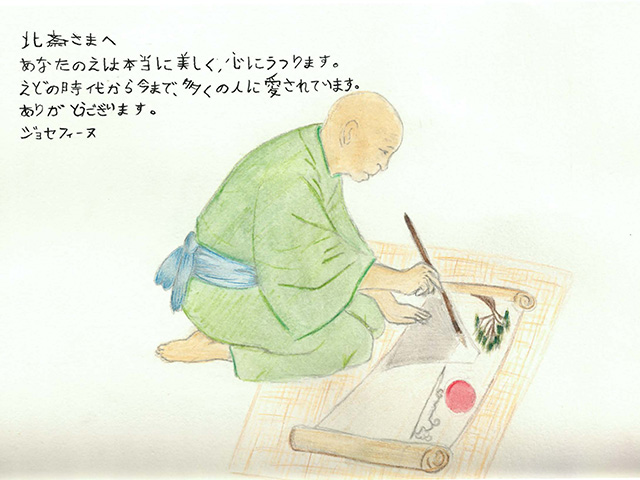 北斎さまへ
あなたのえは本当に美しく、心にうつります。
えどの時代から今まで、多くの人に愛されています。
ありがとうございます。
ジョセフィーヌ